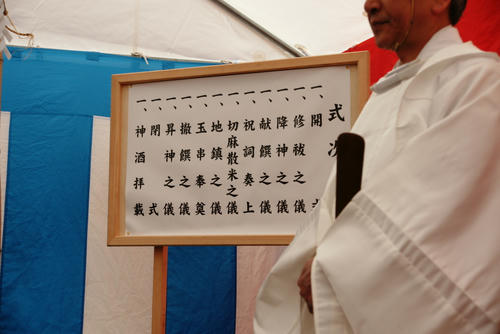 式次
一、開式
一、修祓之儀
一、降神之儀
一、献饌之儀
一、祝詞奏上
一、切麻散米之儀
一、地鎮之儀
一、玉串奉奠
一、撤饌之儀
一、昇神之儀
一、閉式
一、神酒拝戴